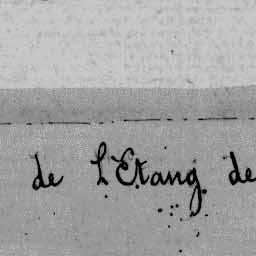 de L'Etang de